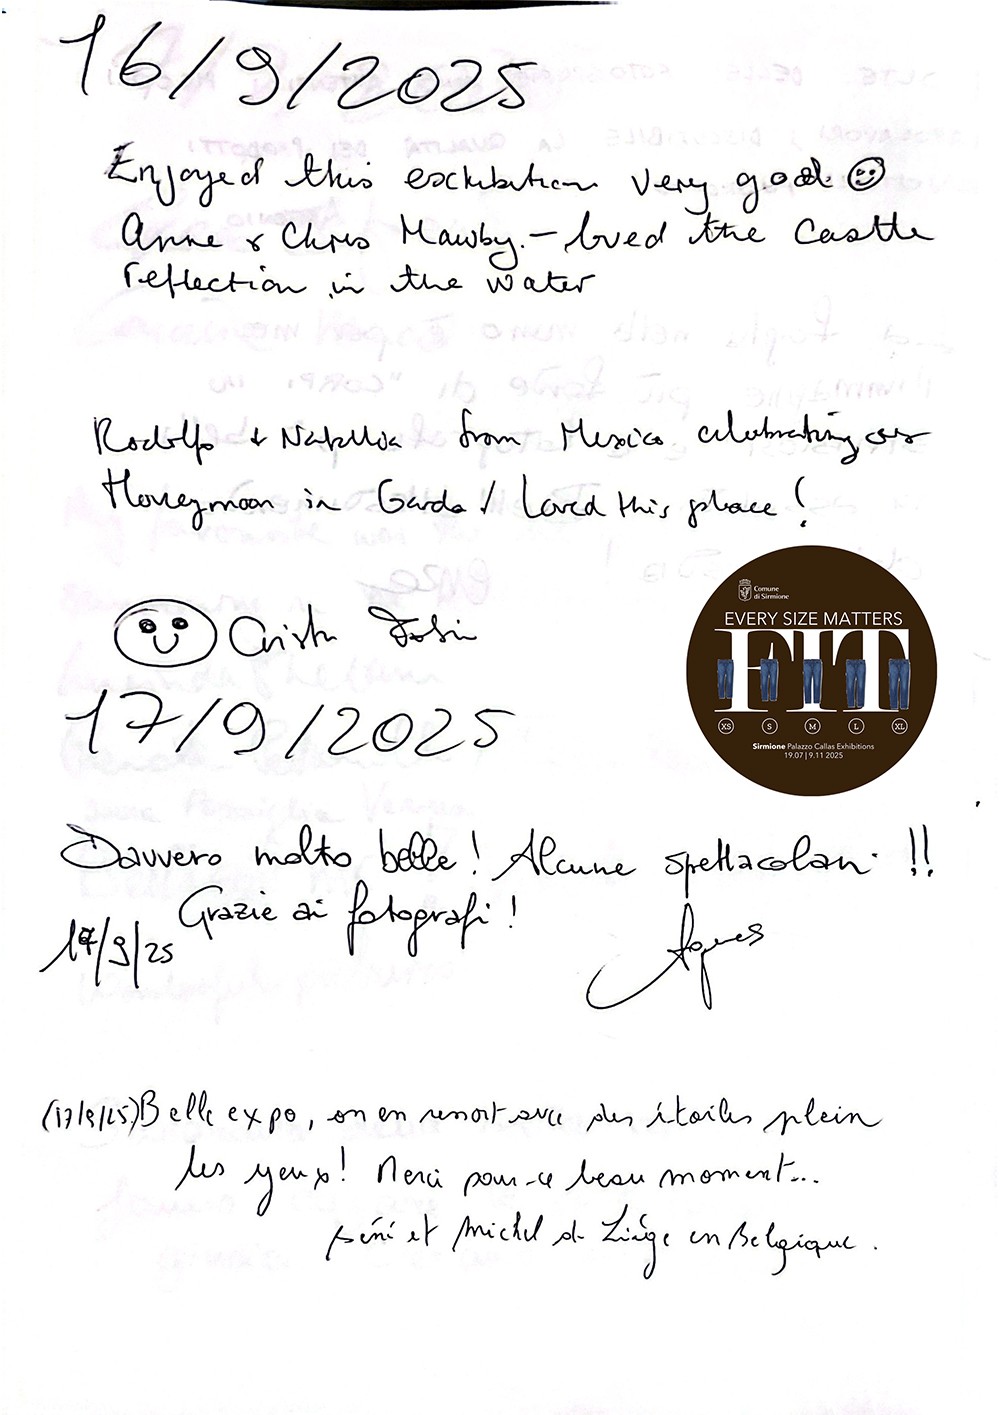 16/9/2025
Enjoyed this exchibition very good
Anne & Chris Mawby. - loved the Castle
reflection in the water
Rodolfo & Natallia from Mexico celebrating our
Honeymoon in Garda / Loved this place!
17/9/2025
Comune
di Sirmione
EVERY SIZE MATTERS
FIT
XS S M L XL
Sirmione Palazzo Callas Exhibitions
19.07 | 9.11 2025
Davvero molto belle! Alcune spettacolari !!
Grazie ai fotografi!
17/9/25
Agnes
(17/9/25) Belle expo, on en ressort avec des étoiles plein
les yeux! Merci pour ce beau moment...
et Michel de Liège en Belgique.